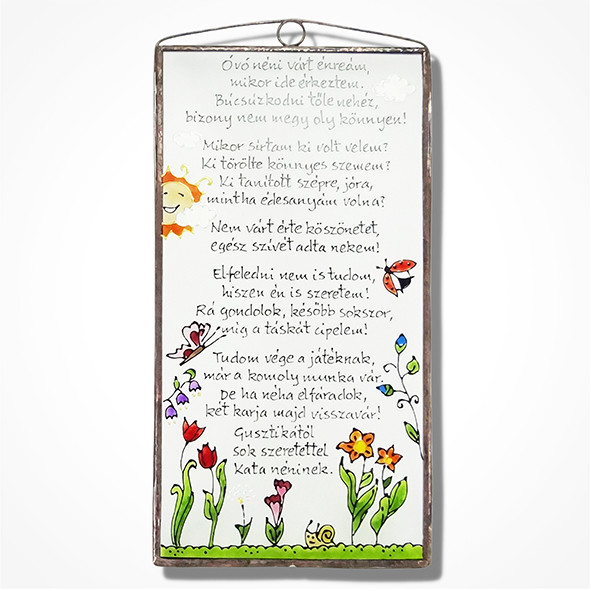 Óvó néni várt énreám,
mikor ide érkeztem.
Búcsúzkodni tőle nehéz,
bizony nem megy oly könnyen!
Mikor sírtam ki volt velem?
Ki törölte könnyes szemem?
Ki tanított szépre, jóra,
mintha édesanyám volna?
Nem várt érte köszönetet,
egész szívét adta nekem!
Elfeledni nem is tudom,
hiszen én is szeretem!
Rá gondolok, később sokszor,
míg a táskát cipelem!
Tudom vége a játéknak,
már a komoly munka vár.
De ha néha elfáradok,
két karja majd visszavár!
Gusztikától
sok szeretettel
Kata néninek.